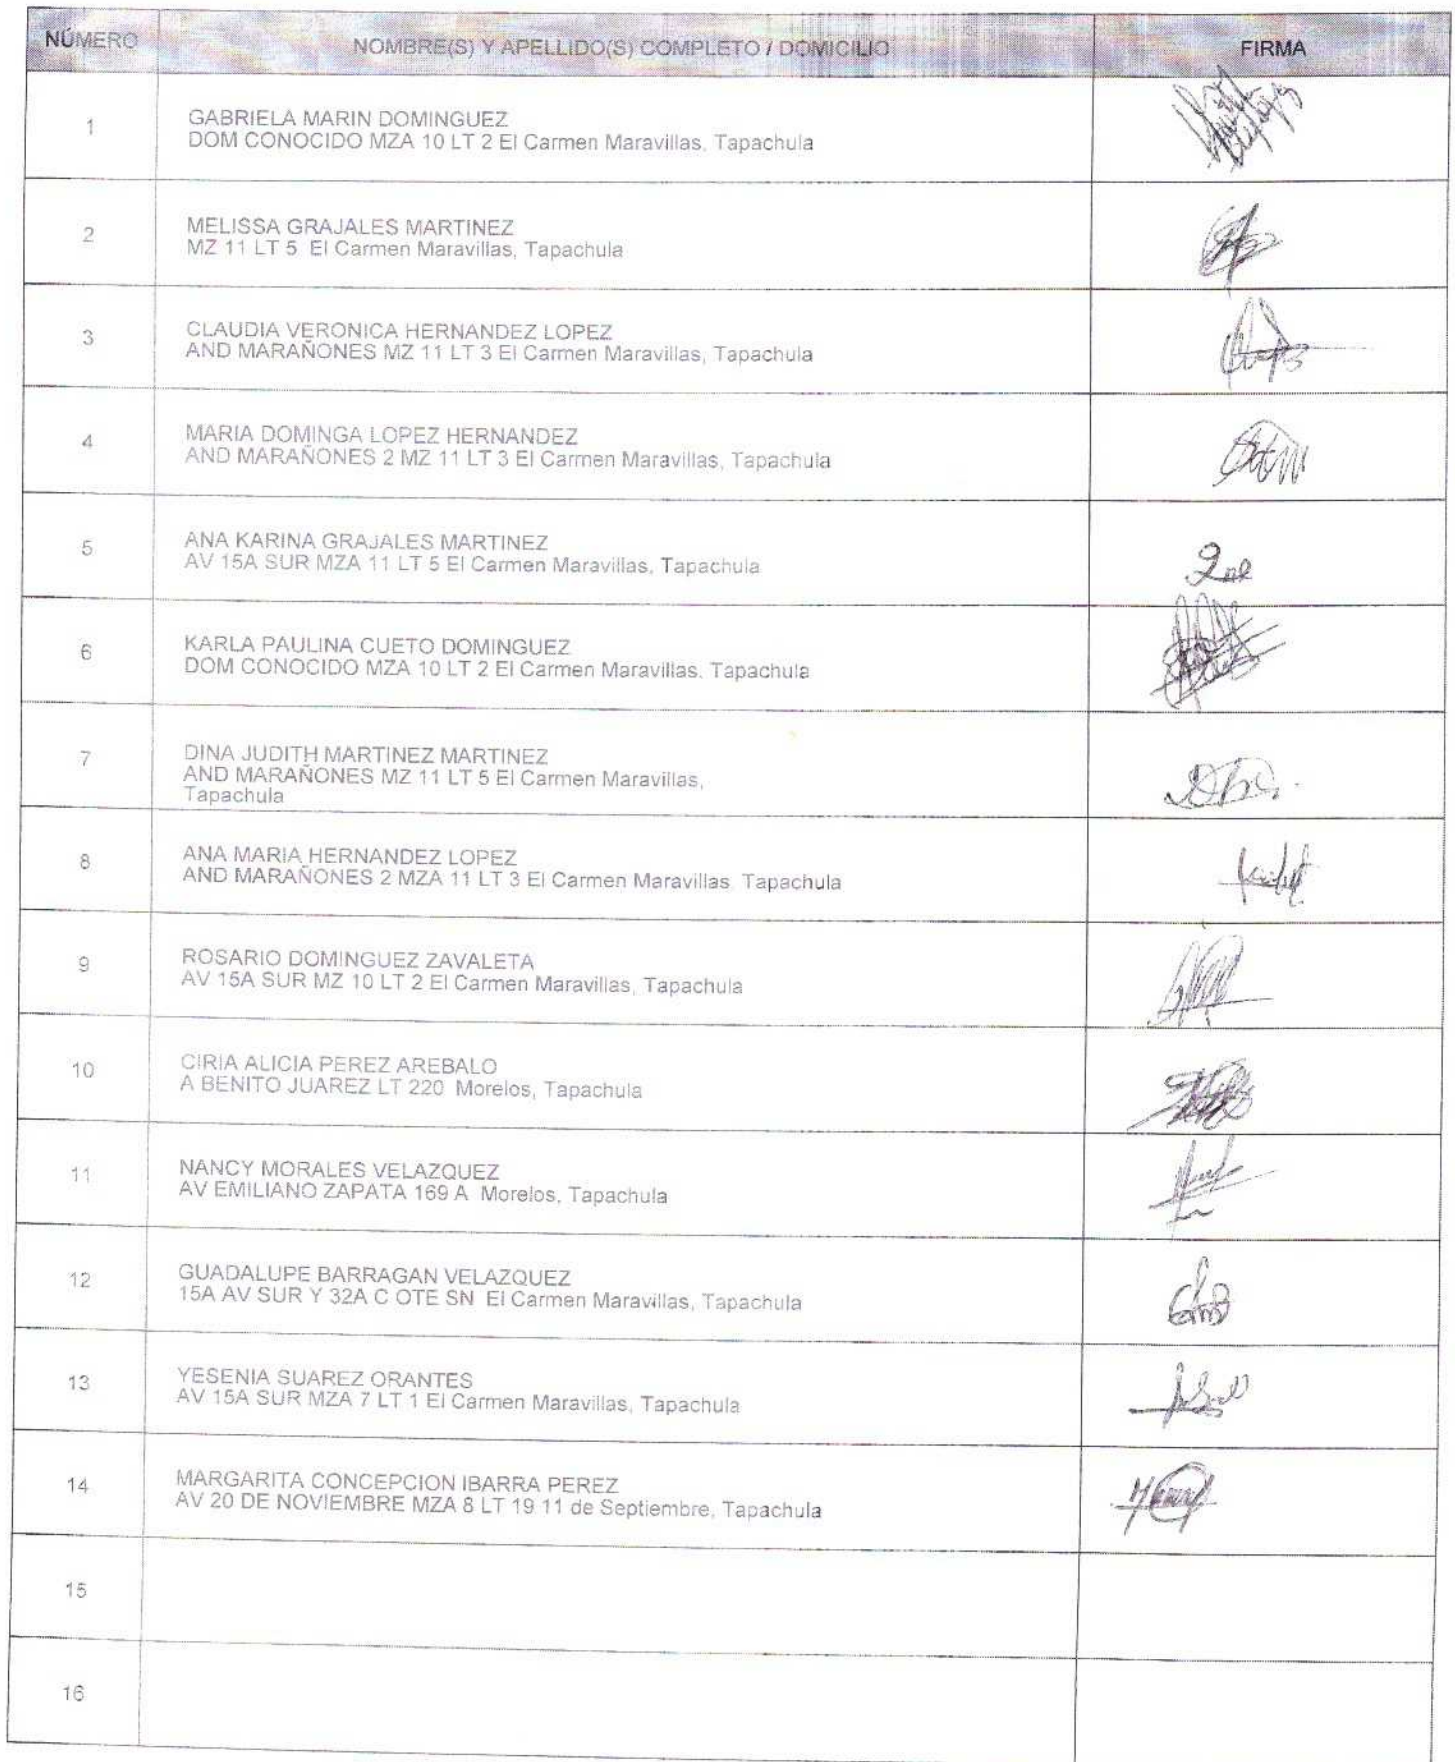 NÚMERO NOMBRE(S) Y APELLIDO(S) COMPLETO / DOMICILIO FIRMA
1 GABRIELA MARIN DOMINGUEZ
DOM CONOCIDO MZA 10 LT 2 El Carmen Maravillas, Tapachula
2 MELISSA GRAJALES MARTINEZ
MZ 11 LT 5 El Carmen Maravillas, Tapachula
3 CLAUDIA VERONICA HERNANDEZ LOPEZ
AND MARAÑONES MZ 11 LT 3 El Carmen Maravillas, Tapachula
4 MARIA DOMINGA LOPEZ HERNANDEZ
AND MARAÑONES 2 MZ 11 LT 3 El Carmen Maravillas, Tapachula
5 ANA KARINA GRAJALES MARTINEZ
AV 15A SUR MZA 11 LT 5 El Carmen Maravillas, Tapachula
6 KARLA PAULINA CUETO DOMINGUEZ
DOM CONOCIDO MZA 10 LT 2 El Carmen Maravillas, Tapachula
7 DINA JUDITH MARTINEZ MARTINEZ
AND MARAÑONES MZ 11 LT 5 El Carmen Maravillas,
Tapachula
8 ANA MARIA HERNANDEZ LOPEZ
AND MARAÑONES 2 MZA 11 LT 3 El Carmen Maravillas Tapachula
9 ROSARIO DOMINGUEZ ZAVALETA
AV 15A SUR MZ 10 LT 2 El Carmen Maravillas, Tapachula
10 CIRIA ALICIA PEREZ AREBALO
A BENITO JUAREZ LT 220 Morelos, Tapachula
11 NANCY MORALES VELAZQUEZ
AV EMILIANO ZAPATA 169 A Morelos, Tapachula
12 GUADALUPE BARRAGAN VELAZQUEZ
15A AV SUR Y 32A C OTE SN El Carmen Maravillas, Tapachula
13 YESENIA SUAREZ ORANTES
AV 15A SUR MZA 7 LT 1 El Carmen Maravillas, Tapachula
14 MARGARITA CONCEPCION IBARRA PEREZ
AV 20 DE NOVIEMBRE MZA 8 LT 19 11 de Septiembre, Tapachula
15
16